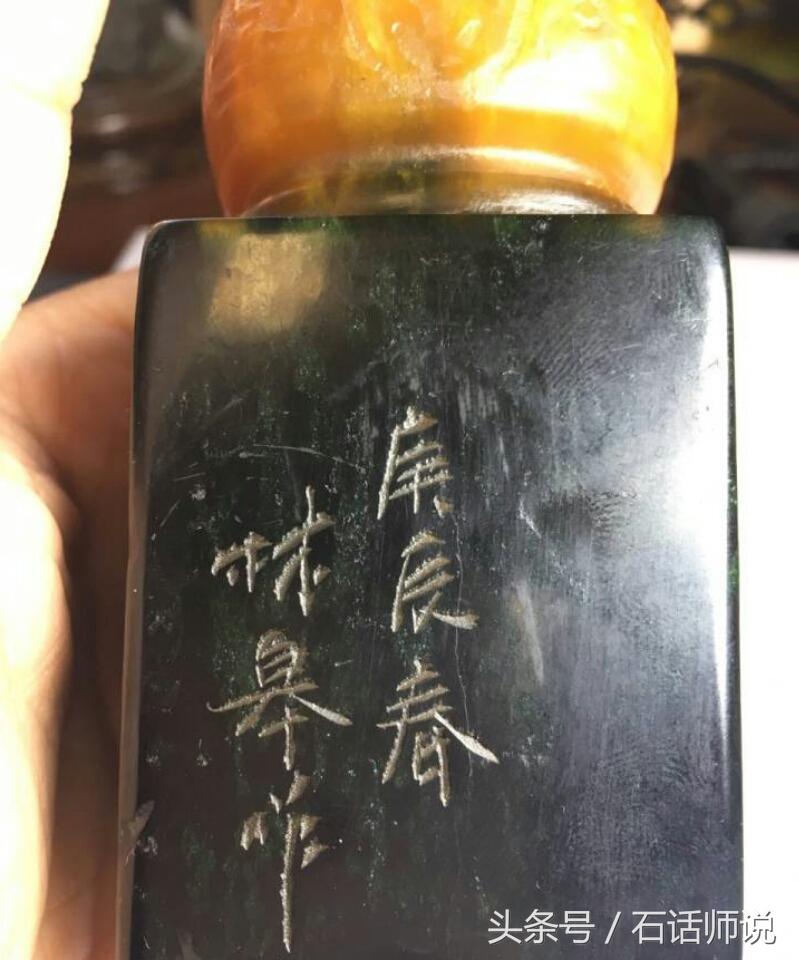 庚辰春
林皋作
头条号 / 石话师说